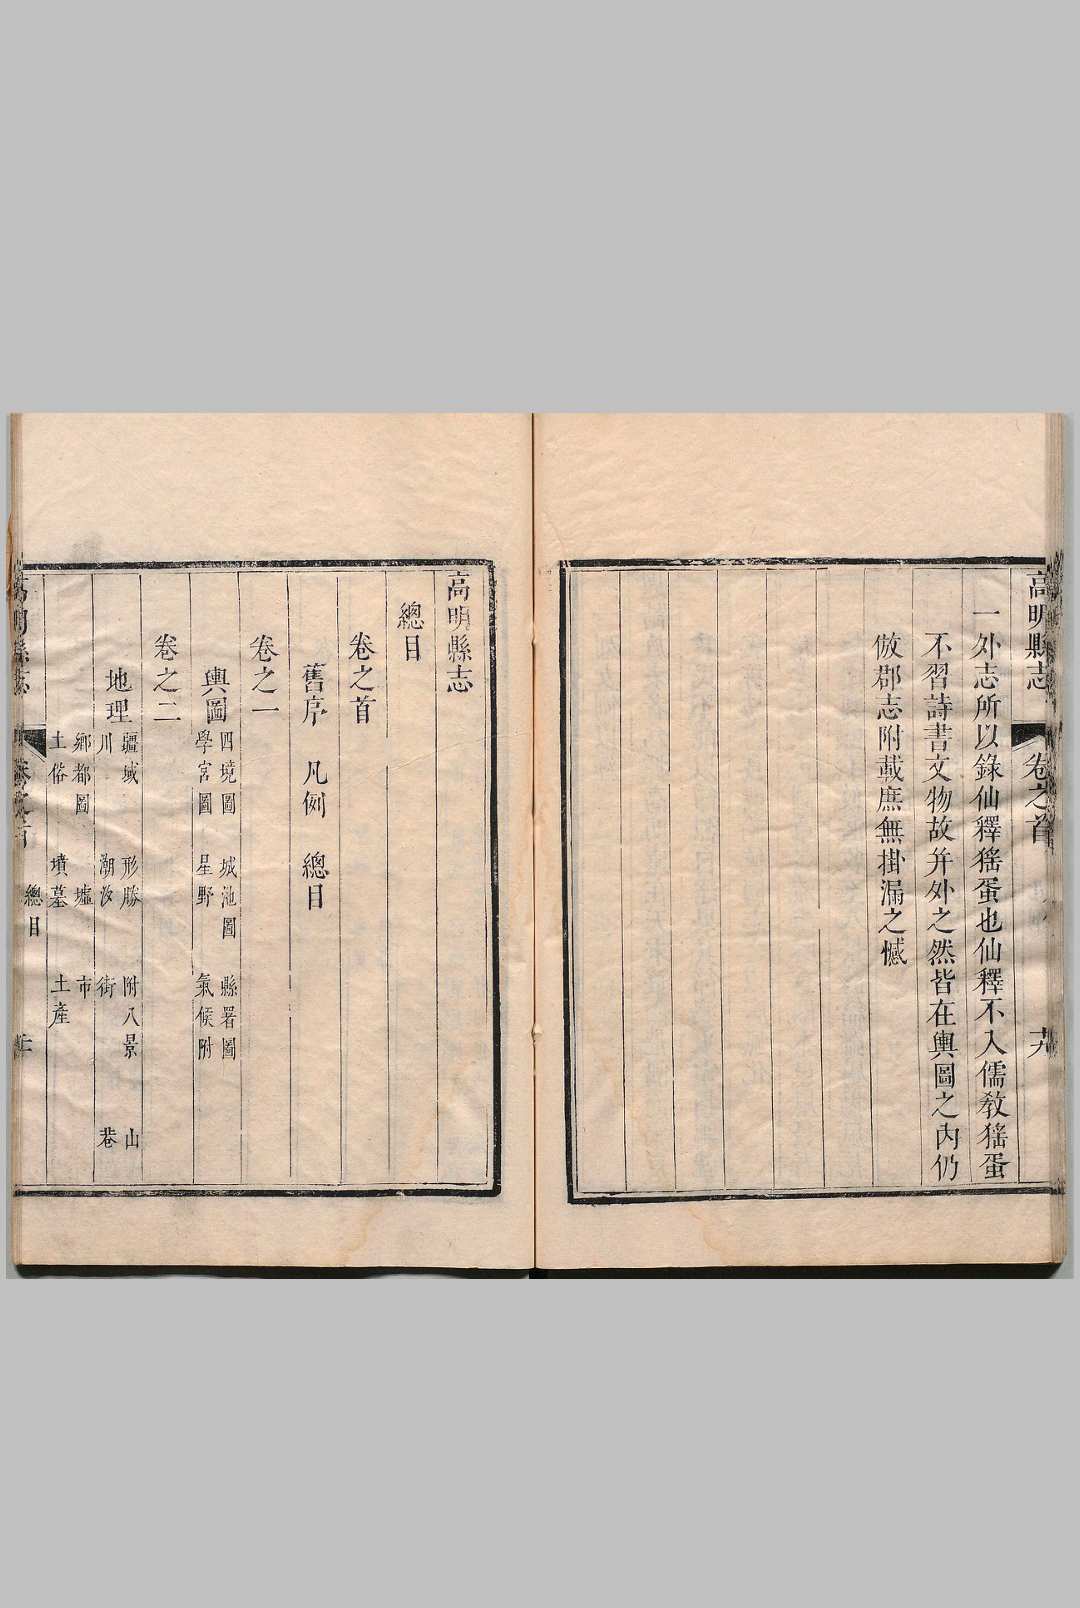 高明縣志
卷之首
一外志所以錄仙釋猺蛋也仙釋不入儒敎猺蛋
不習詩書文物故并外之然皆在輿圖之內仍
倣郡志附載庶無掛漏之憾
高明縣志
總目
卷之首
舊序 凡例 總目
卷之一
輿圖
四境圖 城池圖 縣署圖
學宮圖 星野 氣候附
卷之二
地理
疆域 形勝 附八景 山
川 潮汐 街 巷
鄉都圖 墟 市
土俗 墳墓 土產
總目